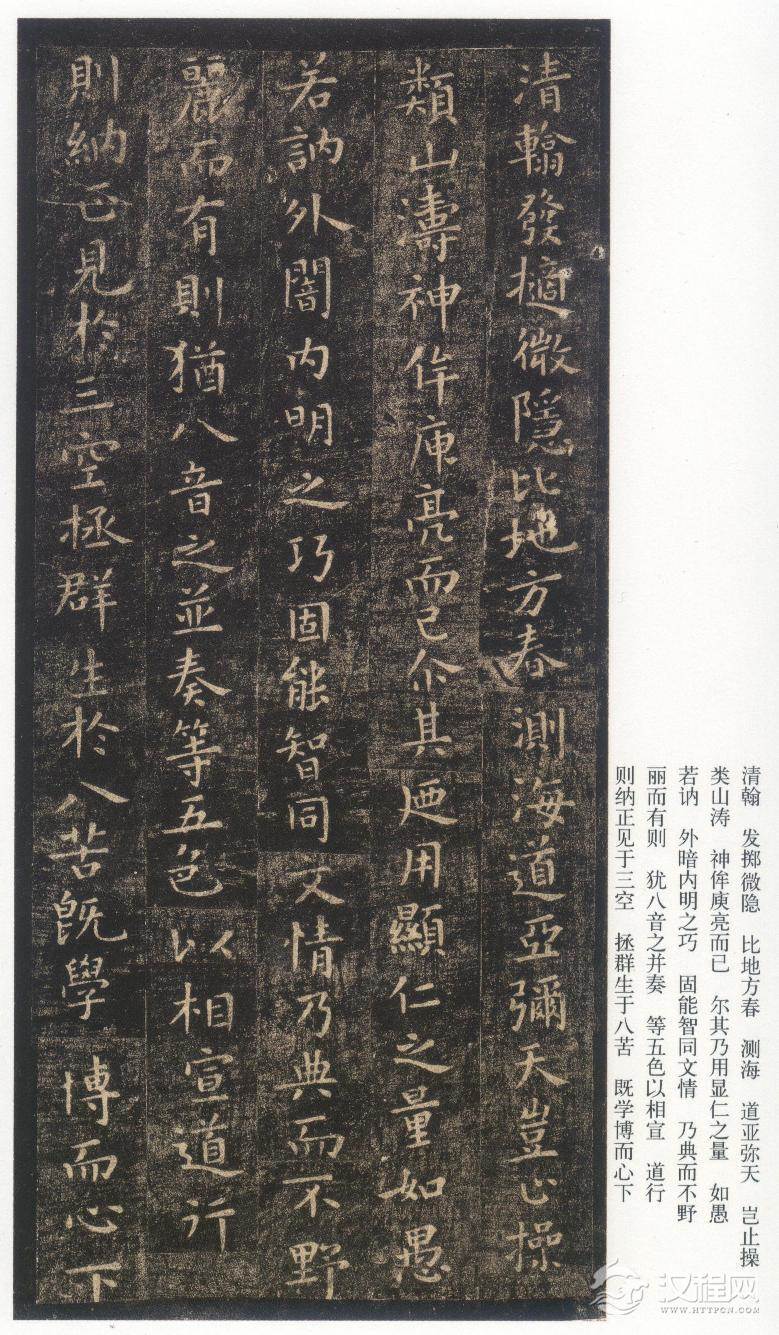 清翰發擿微隱比地方春測海道亞彌天豈止操
類山濤神侔庾亮而已尒其廼用顯仁之量如愚
若訥外闇内明之巧固能智同文情乃典而不野
麗而有則猶八音之並奏等五色以相宣道行
則納正見於三空拯群生於八苦既學博而心下
清翰　发掷微隐　比地方春　测海　道亚弥天　岂止操
类山涛　神侔庾亮而已　尔其乃用显仁之量　如愚
若讷　外暗内明之巧　固能智同文情　乃典而不野
丽而有则　犹八音之并奏　等五色以相宣　道行
则纳正见于三空　拯群生于八苦　既学博而心下
汉程网
WWW.HTTPCN.COM